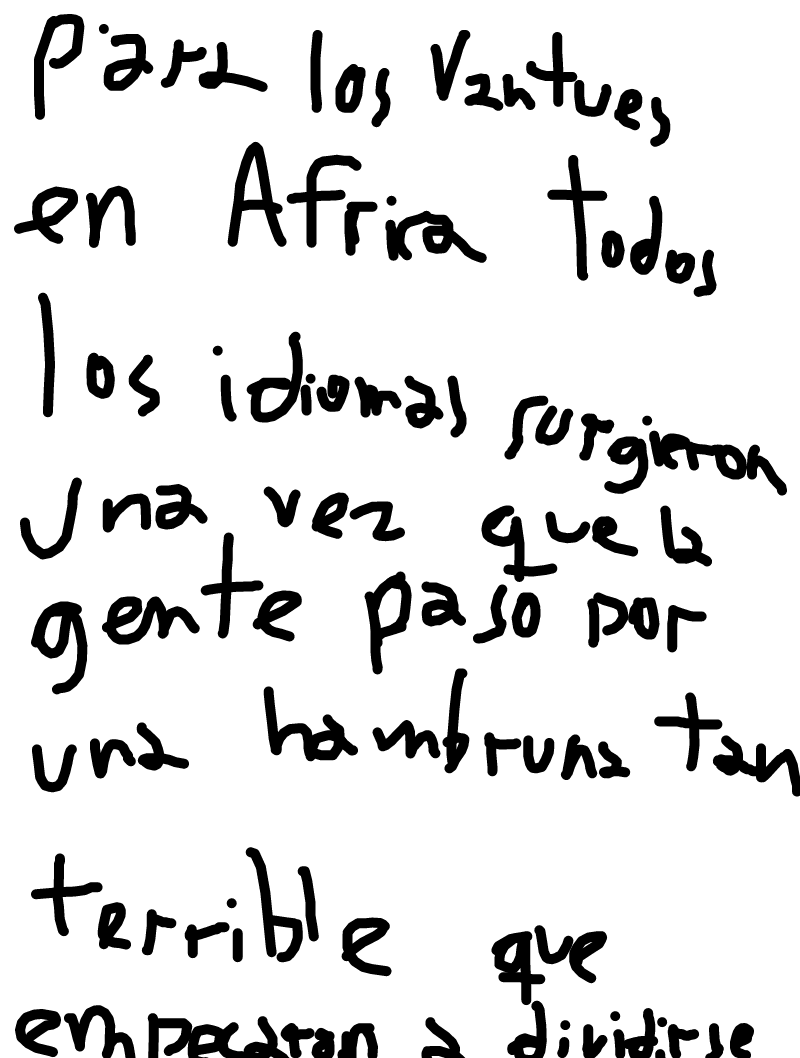 Para los vantues
en Africa todos
los idiomas surgieron
una vez que la
gente paso por
una hambruna tan
terrible que
empezaron a dividirse